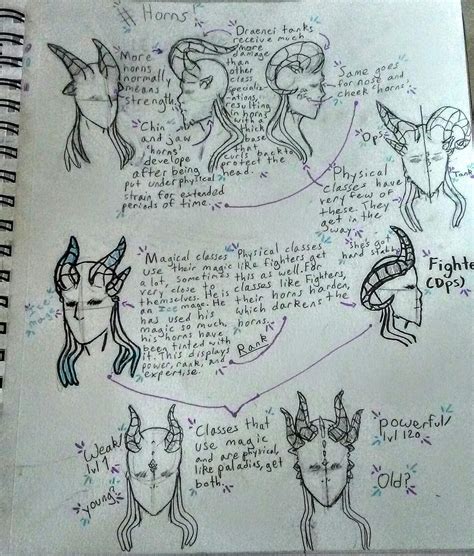 # Horns!
More
horns
normally
means
strength.
Chin
and Jaw
'horns'
develope
after being
put under physical
strain for extended
periods of time.
Draenei tanks
receive much
more
damage
than
other
dress
specializ-
ations,
resulting
in horns
with a
thick
base
that
curls back to
protect the
head.
Same goes
for nose and
cheek 'horns'.
Physical
classes have
very few of
these. They
get in the
way
Dps
Tank
Magical classes
use their magic
a lot, sometimes
very close to
themselves. He is
an Ice mage. He
has used his
magic so much,
his horns have
been tinted with
it. This displays
power, rank, and
expertise.
Ice
mage
Physical classes
like Fighters get
this as well. For
classes like Fighters,
their horns harden,
which darkens the
horns.
Rank
She's got
hand stabby
Fighter
(Dps)
Weak/
lvl 1
young?
Classes that
use magic
and are physical,
like paladies, get
both.
powerful/
lvl 120
Old?